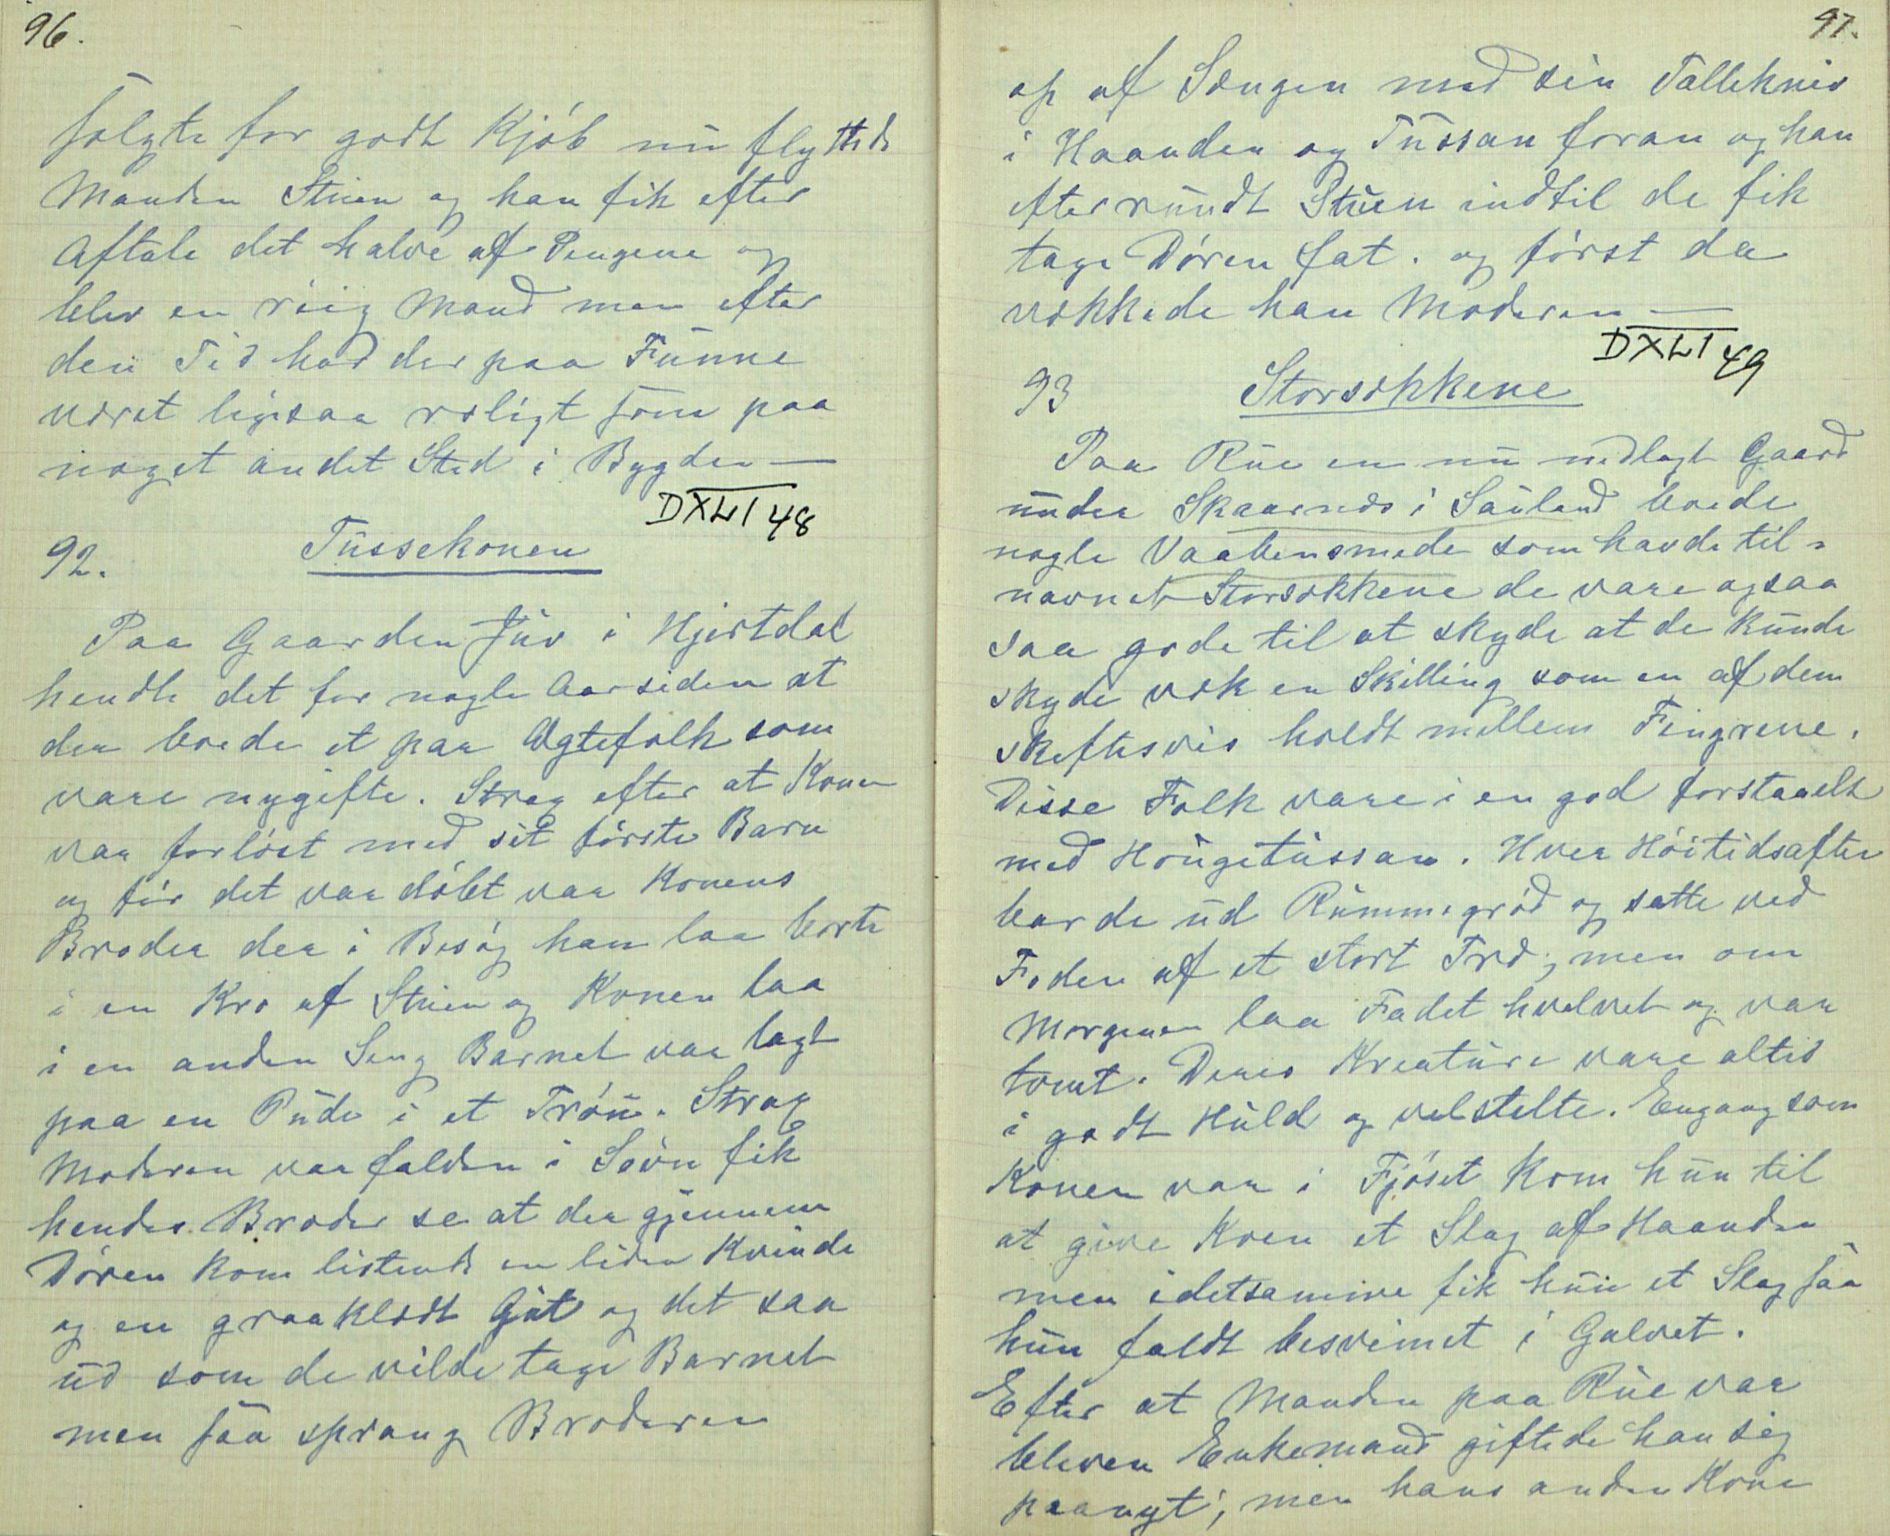 96.
solgte for godt Kjøb nu flyttede
Manden Stuen og han fik efter
Aftale det halve af Pengene og
blev en riig Mand men efter
den Tid har der paa Funne
været ligesaa roligt som paa
noget andet Sted i Bygden —
DXLI 48
92. Tussekonen
Paa Gaarden Juv i Hjertdal
hendte det for nogle Aar siden at
der boede et par Ægtefolk som
vare nygifte. Strax efter at Konen
var forløst med sit første Barn
og før det var døbt var Konens
Broder der i Besøg han laa borte
i en Kro af Stuen og Konen laa
i en anden Seng Barnet var lagt
paa en Pude i et Trøu. Strax
Moderen var falden i Søvn fik
hendes Broder se at der gjennem
Døren kom listende en liden Kvinde
og en graaklædt Gut og det saa
ud som de vilde tage Barnet
men saa sprang Broderen
97.
op af Sængen med sin Tollekniv
i Haanden og Tussan foran og han
efter rundt Stuen indtil de fik
tage Døren fat. og først da
vækkede han Moderen —
DXLI 49
93 Storsækkene
Paa Rue en nu nedlagt Gaard
under Skaarnæs i Sauland boede
nogle Vaabensmede som havde til-
navnet Storsækkene de vare ogsaa
saa gode til at skyde at de kunde
skyde væk en Skilling som en af dem
skiftesvis holdt mellem Fingrene.
Disse Folk vare i en god forstaaelse
med Hougetussan. Hver Høitidsaften
bar de ud Rømmegrød og satte ved
Foden af et stort Træ, men om
Morgenen laa Fadet hvelvet og var
tomt. Deres Kreature vare altid
i godt Huld og velstelte. Engang som
Konen var i Fjøset kom hun til
at give Koen et Slag af Haanden
men idetsamme fik hun et Slag saa
hun faldt besvimet i Gulvet.
Efter at Manden paa Rue var
bleven Enkemand giftede han sig
paanyt; men hans anden Kone